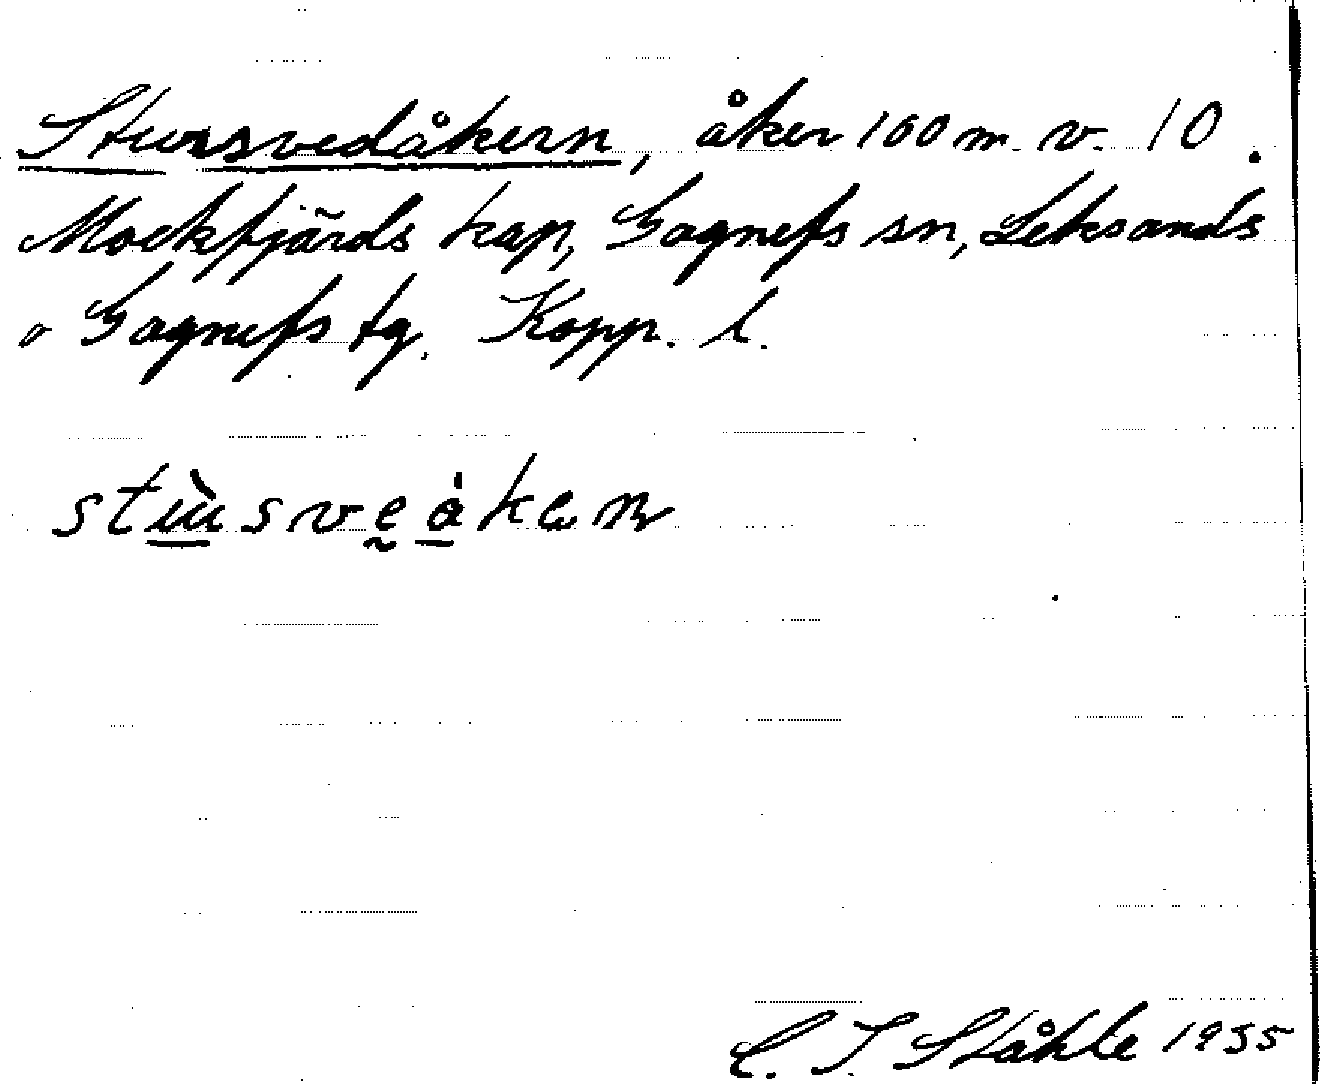 Stursvedåkern, åker 100 m v. 10.
Mockfjärds kap, Gagnefs sn, Leksands
o Gagnefs tg. Kopp. l.
C. I. Ståhle 1935